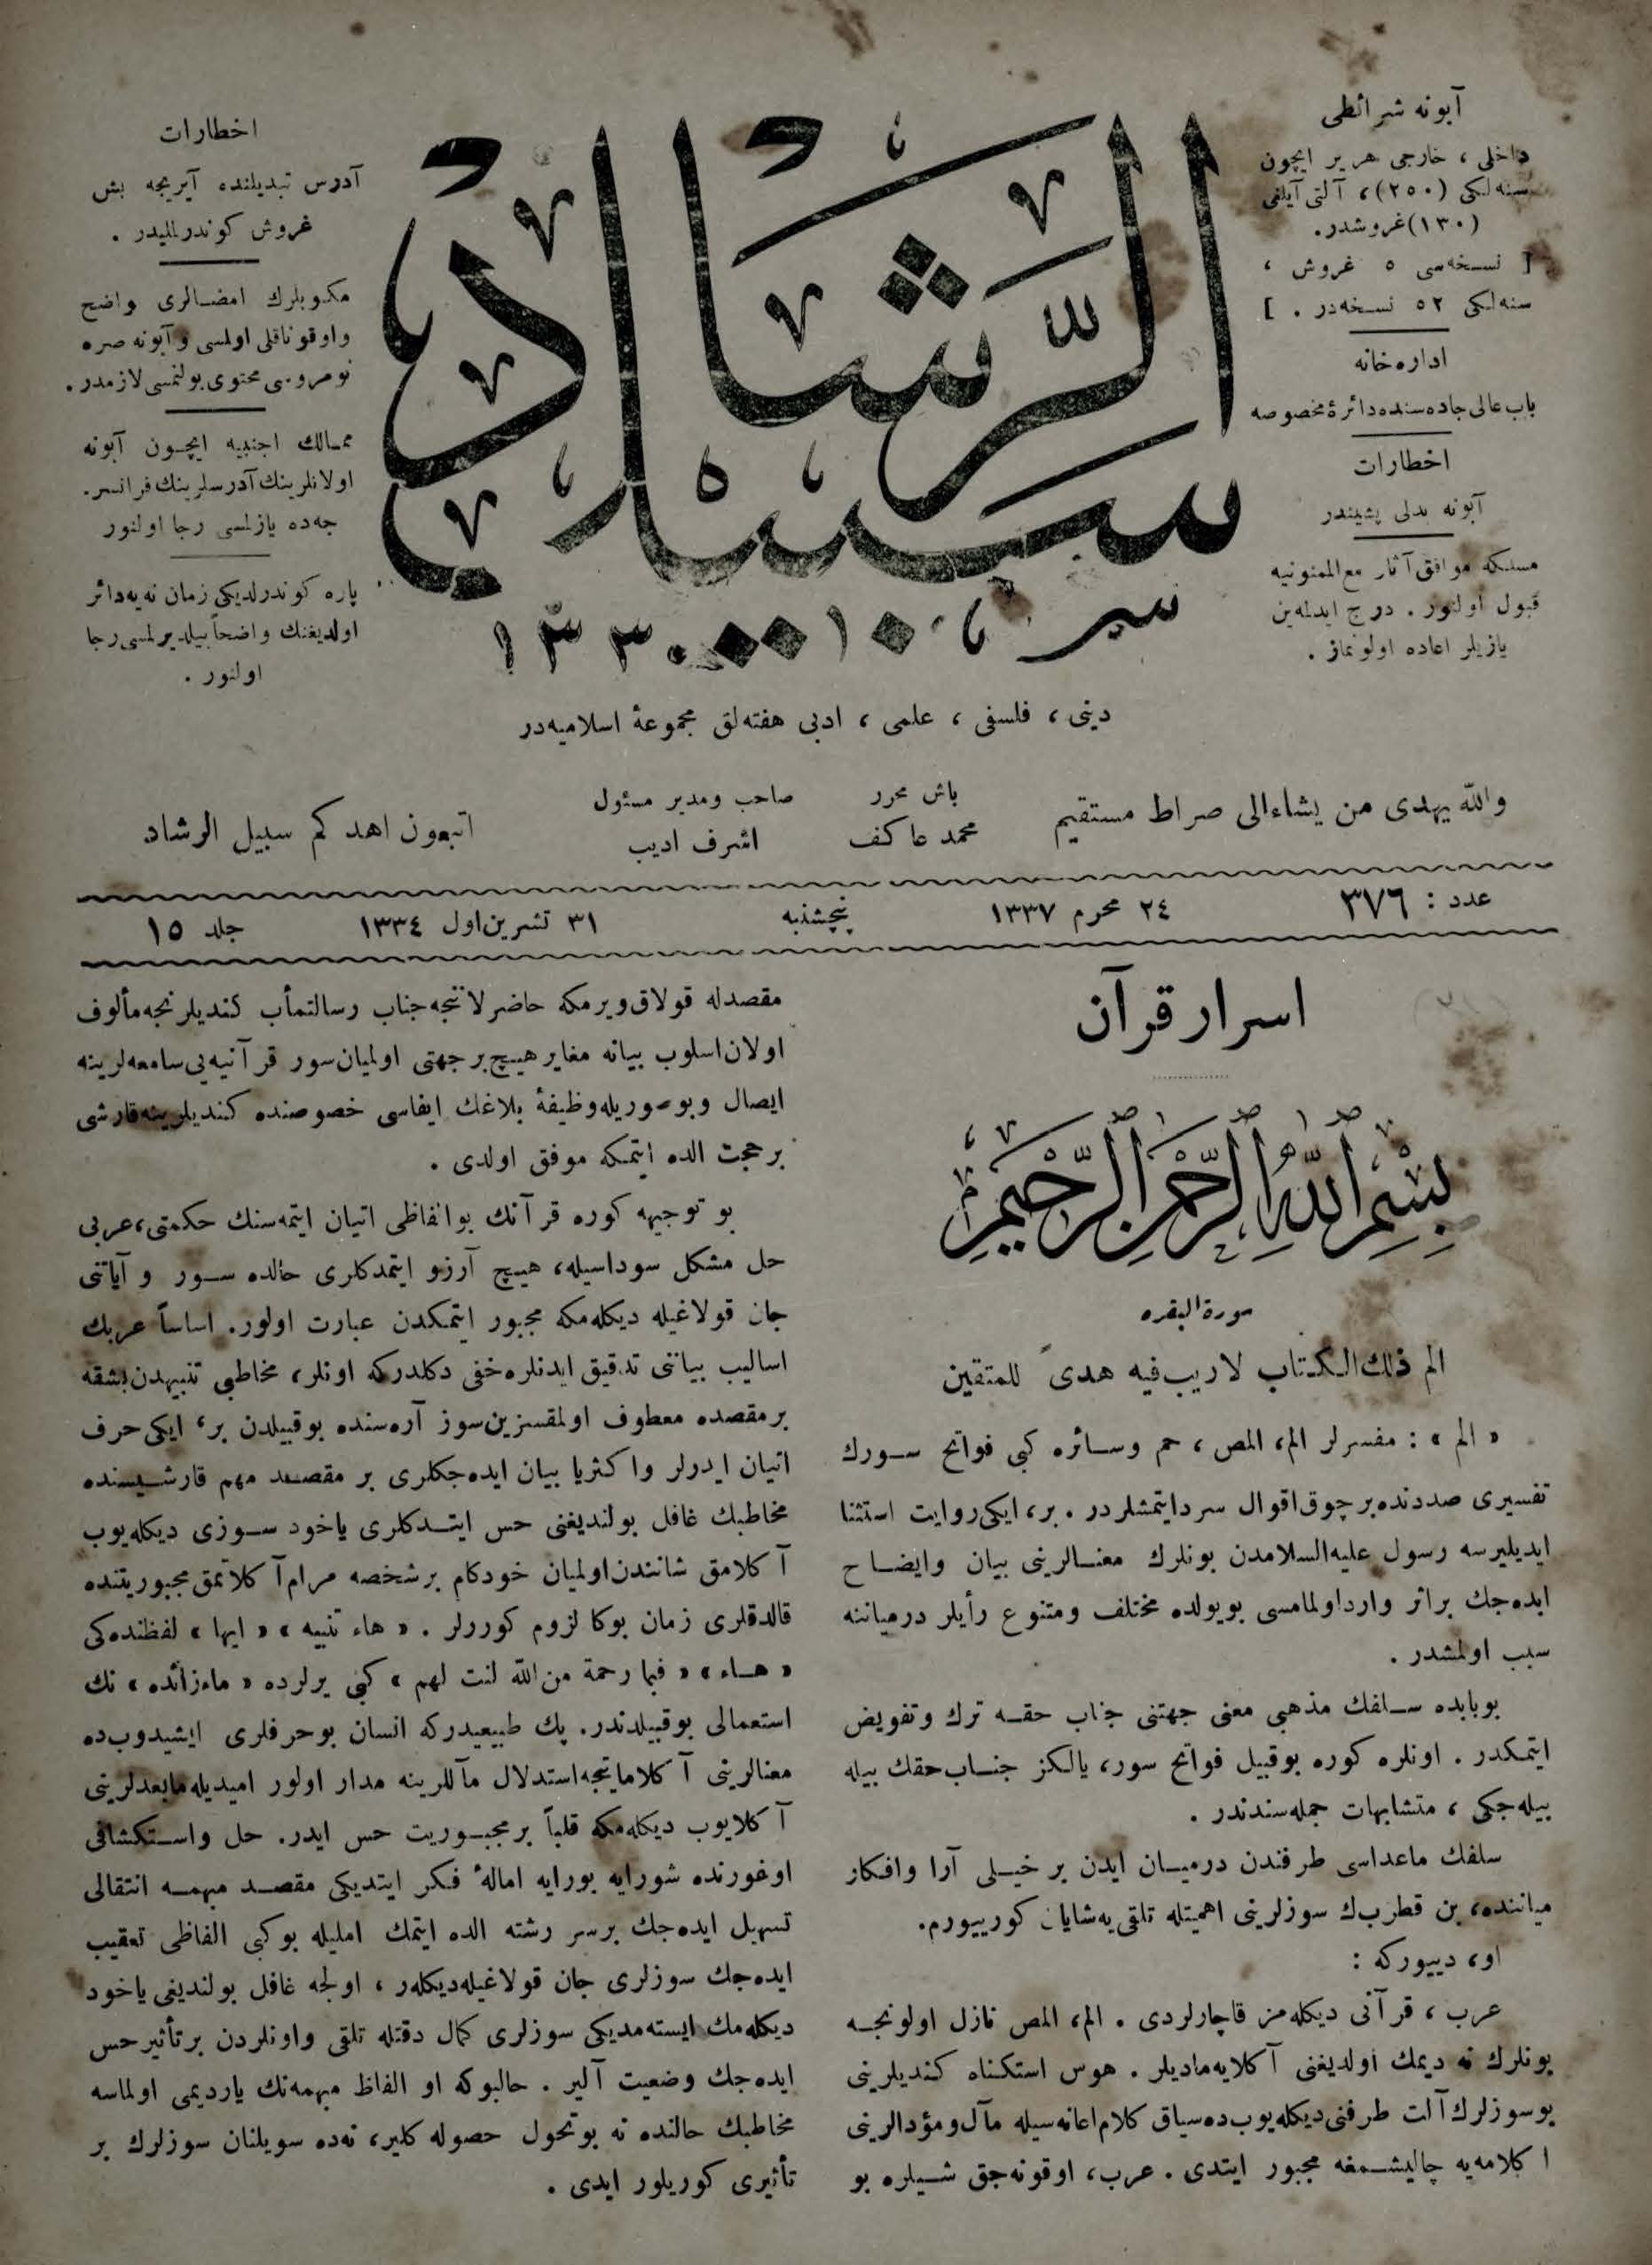 آبونه شرائطی
داخلی ، خارجی هر یر ایچون
سنه‌لکی (٢٥٠)، آلتی آیلغی
(١٣٠) غروشدر.
[ نسخه‌سی ٥ غروش ،
سنه‌لکی ٥٢ نسخه‌در . ]
اداره خانه
باب عالی جاده‌سنده دائرهٔ مخصوصه
اخطارات
آبونه بدلی پشیندر
مسلکه موافق آثار مع الممنونیه
قبول اولنور . درج ایدلمه‌ین
یازیلر اعاده اولونماز .
سبیل الرشاد
اخطارات
آدرس تبدیلنده آیریجه بش
غروش کوندرلملیدر .
مکتوبلرك امضالری واضح
واوقوناقلی اولمسی و آبونه صره
نومروسی محتوی بولنمسی لازمدر.
ممالك اجنبیه ایچون آبونه
اولانلرینك آدرسلرینك فرانسز-
جه‌ده یازلمسی رجا اولنور
پاره کوندرلدیکی زمان نه‌یه دائر
اولدیغنك واضحاً بیلدیرلمسی رجا
اولنور .
دینی ، فلسفی ، علمی ، ادبی هفته‌لق مجموعهٔ اسلامیه‌در
والله یهدی من یشاء الی صراط مستقیم
باش محرر
محمد عاکف
صاحب ومدیر مسئول
اشرف ادیب
اتبعون اهدکم سبیل الرشاد
عدد : ٣٧٦
٢٤ محرم ١٣٣٧
پنجشنبه
٣١ تشرین اول ١٣٣٤
جلد ١٥
اسرار قرآن
بِسْمِ اللّٰهِ الرَّحْمٰنِ الرَّحِيمِ
سورة البقره
الم ذلك الكتاب لاریب فیه هدیً للمتقین
« الم » : مفسرلر الم، المص ، حم وسائره کبی فواتح سورك
تفسیری صددنده بر چوق اقوال سرد ایتمشلردر . بر، ایکی روایت استثنا
ایدیلیرسه رسول علیه السلامدن بونلرك معنالرینی بیان وایضاح
ایده‌جك براثر وارد اولمامسی بویولده مختلف ومتنوع رأیلر درمیاننه
سبب اولمشدر .
بوبابده سلفك مذهبی معنی جهتنی جناب حقه ترك وتفویض
ایتمکدر . اونلره کوره بوقبیل فواتح سور، یالکز جناب حقك بیله
بیله‌جکی ، متشابهات جمله‌سندندر .
سلفك ماعداسی طرفندن درمیان ایدن بر خیلی آرا وافکار
میاننده، بن قطربك سوزلرینی اهمیتله تلقی‌یه شایان کورییورم.
او، دییورکه :
عرب ، قرآنی دیکله‌مز قاچارلردی . الم، المص نازل اولونجه
بونلرك نه دیمك اولدیغنی آکلایه‌مادیلر . هوس استکناه کندیلرینی
بوسوزلرك آلت طرفنی دیکله‌یوب ده سیاق کلام اعانه‌سیله مآل ومؤدالرینی
اکلامه‌یه چالیشمغه مجبور ایتدی . عرب، اوقونه‌جق شیلره بو
مقصدله قولاق ویرمکه حاضرلاننجه جناب رسالتمأب کندیلرنجه مألوف
اولان اسلوب بیانه مغایر هیچ بر جهتی اولمیان سور قرآنیه‌یی سامعه‌لرینه
ایصال وبوصوریله وظیفهٔ بلاغك ایفاسی خصوصنده کندیلرینه قارشی
بر حجت الده ایتمکه موفق اولدی .
بو توجیهه کوره قرآنك بوالفاظی اتیان ایتمه‌سنك حکمتی، عربی
حل مشکل سوداسیله، هیچ آرزو ایتمدکلری حالده سور و آیاتنی
جان قولاغیله دیکله‌مکه مجبور ایتمکدن عبارت اولور. اساساً عربك
اسالیب بیاننی تدقیق ایدنلره خفی دکلدرکه اونلر، مخاطبی تنبیهدن بشقه
بر مقصده معطوف اولمقسزین سوز آره‌سنده بوقبیلدن بر، ایکی حرف
اتیان ایدرلر واکثریا بیان ایده‌جکلری بر مقصد مهم قارشیسنده
مخاطبك غافل بولندیغنی حس ایتدکلری یاخود سوزی دیکله‌یوب
آکلامق شانندن اولمیان خودکام بر شخصه مرام آکلاتمق مجبوریتنده
قالدقلری زمان بوکا لزوم کوررلر . « هاء تنبیه » « ایها » لفظنده‌کی
« هاء » « فبما رحمة من الله لنت لهم » کبی یرلرده « ماء زائده » نك
استعمالی بوقبیلدندر. پك طبیعیدرکه انسان بوحرفلری ایشیدوب ده
معنالرینی آکلامایجه استدلال مآللرینه مدار اولور امیدیله مابعدلرینی
آکلایوب دیکله‌مکه قلباً بر مجبوریت حس ایدر. حل واستکشافی
اوغورنده شورایه بورایه امالهٔ فکر ایتدیکی مقصد مبهمه انتقالی
تسهیل ایده‌جك بر سر رشته الده ایتمك املیله بوکبی الفاظی تعقیب
ایده‌جك سوزلری جان قولاغیله دیکلر ، اولجه غافل بولندیغی یاخود
دیکله‌مك ایسته‌مدیکی سوزلری کمال دقتله تلقی واونلردن بر تأثیر حس
ایده‌جك وضعیت آلیر . حالبوکه او الفاظ مبهمه‌نك یاردیمی اولماسه
مخاطبك حالنده نه بوتحول حصوله کلیر، نه‌ده سویلنان سوزلرك بر
تأثیری کوریلور ایدی .